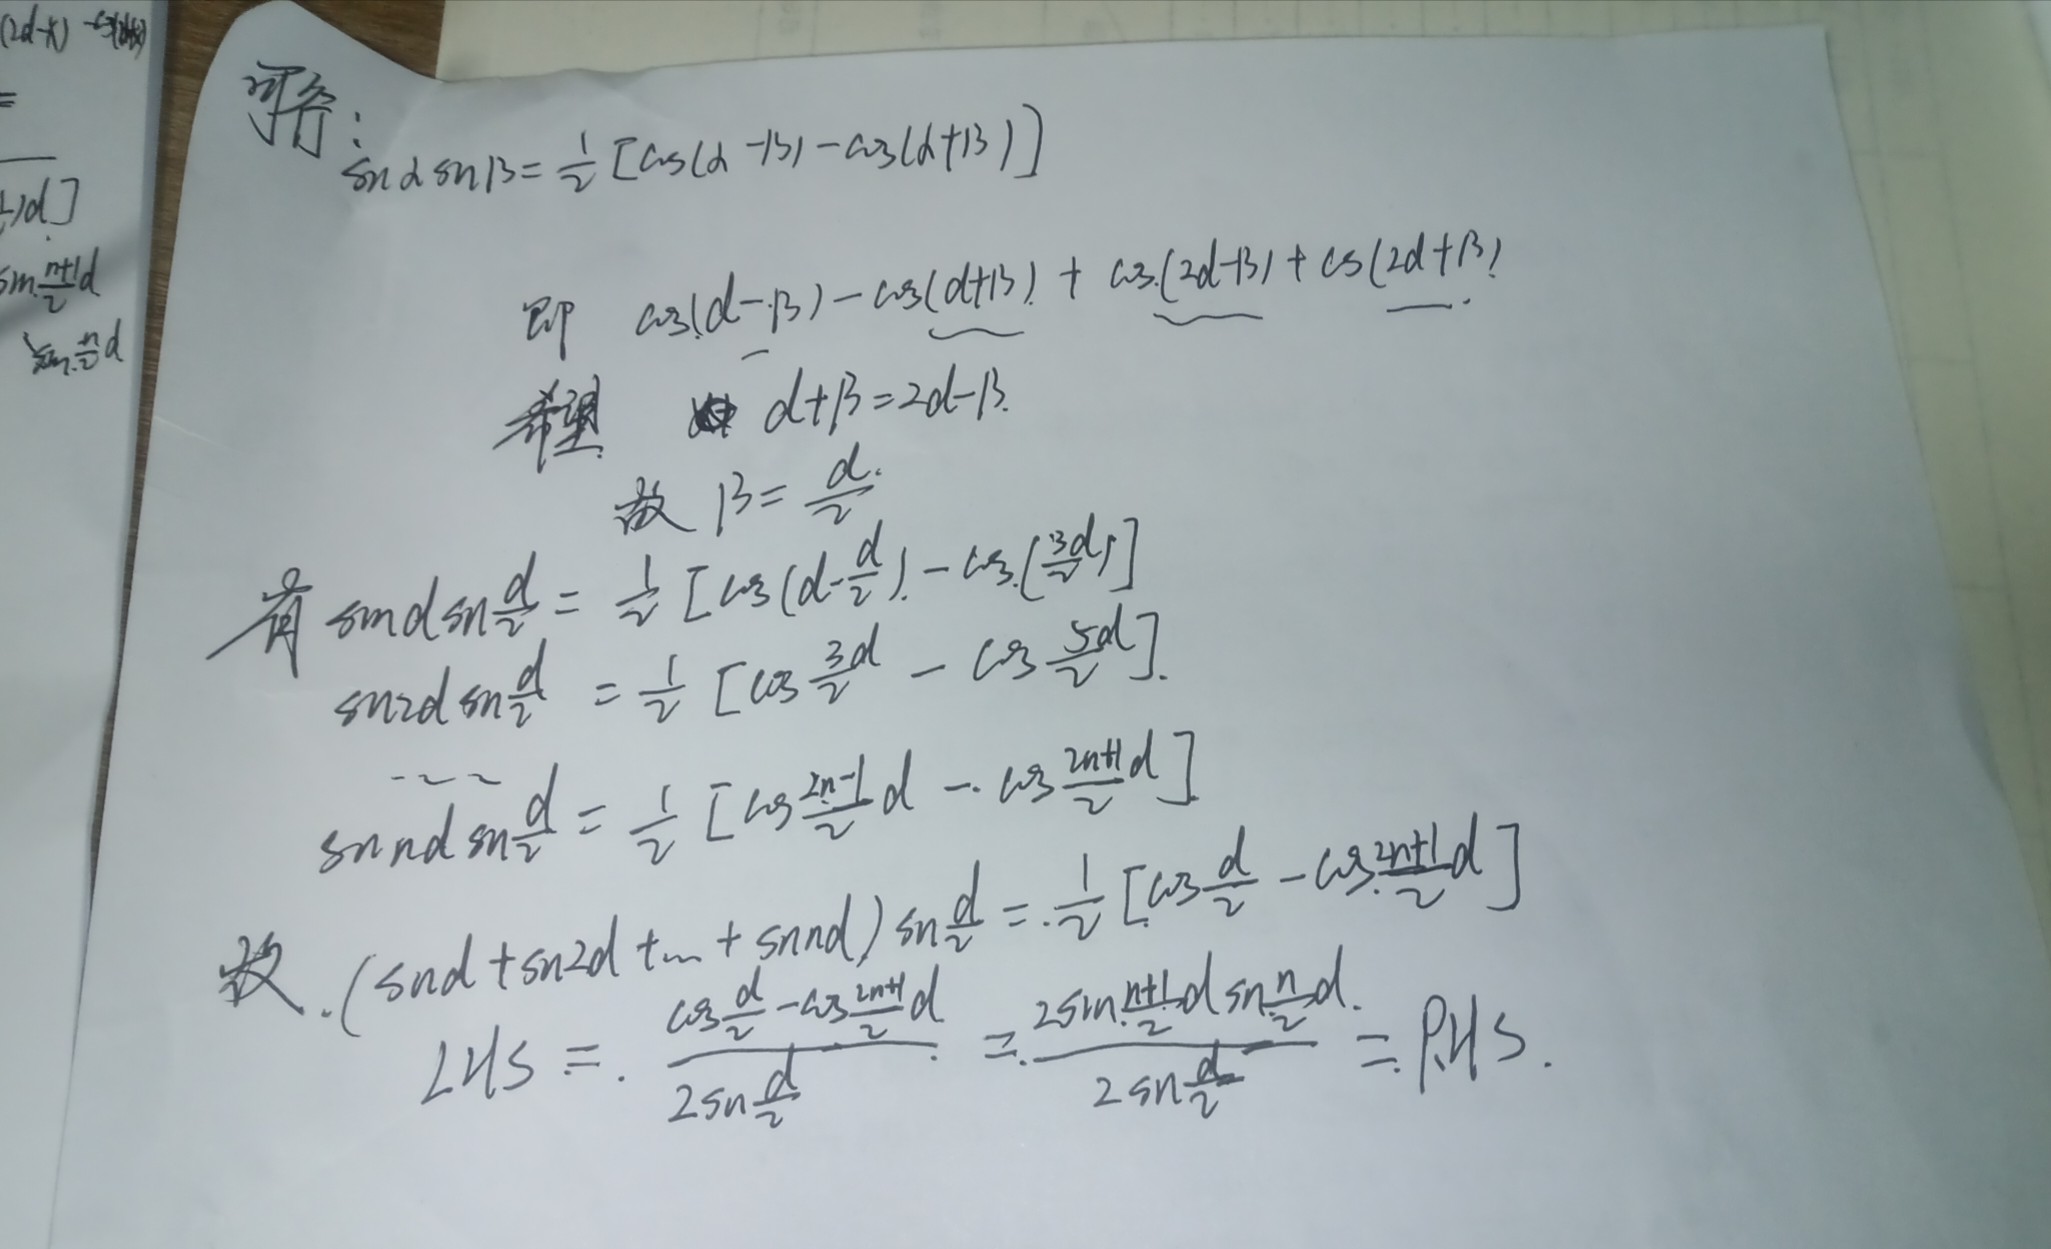 (2α-β) -cos(α+β)
=
)α]
sin n+1/2 α
sin n/2 α
sinα sinβ = 1/2 [cos(α-β) - cos(α+β)]
即 cos(α-β) - cos(α+β) + cos(2α-β) + cos(2α+β)
希望 α+β = 2α-β.
故 β = α/2.
有 sinα sin α/2 = 1/2 [cos(α - α/2) - cos(3α/2)]
sin2α sin α/2 = 1/2 [cos 3/2 α - cos 5/2 α].
sin nα sin α/2 = 1/2 [cos 2n-1/2 α - cos 2n+1/2 α]
故. (sinα + sin2α + ... + sin nα) sin α/2 = 1/2 [cos α/2 - cos 2n+1/2 α]
LHS = (cos α/2 - cos 2n+1/2 α) / (2 sin α/2) = (2 sin n+1/2 α sin n/2 α) / (2 sin α/2) = RHS.